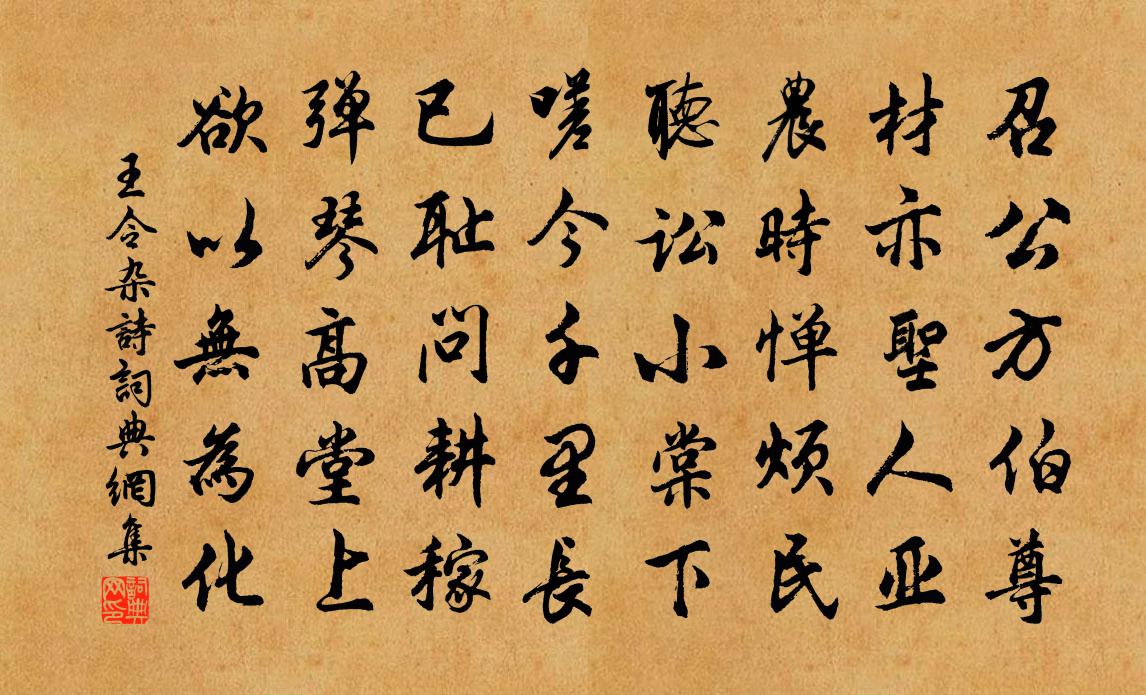 召公方伯尊
材亦聖人亚
農時惮烦民
聽讼小棠下
嗟今千里長
已耻问耕稼
弹琴高堂上
欲以無為化
王令杂詩詞典網集
詞典网印